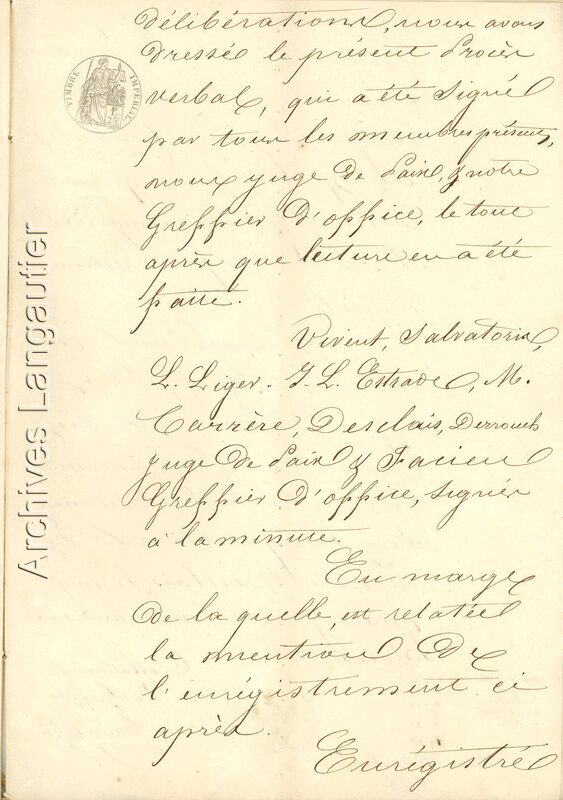 délibérations, nous avons
dressé le présent Procès
verbal, qui a été signé
par tous les membres présents,
nous juge de Paix, & notre
Greffier d'office, le tout
après que lecture en a été
faite.
Vivent, Salvatoris,
L. Liger. J. L. Estrade, M.
Carrère, Desclais, Derrouch
juge de Paix & Facieu
Greffier d'office, signés
à la minute.
En marge
de la quelle, est relatée
la mention de
l'enrégistrement ci
après.
Enrégistré
TIMBRE IMPÉRIAL
Archives Langautier